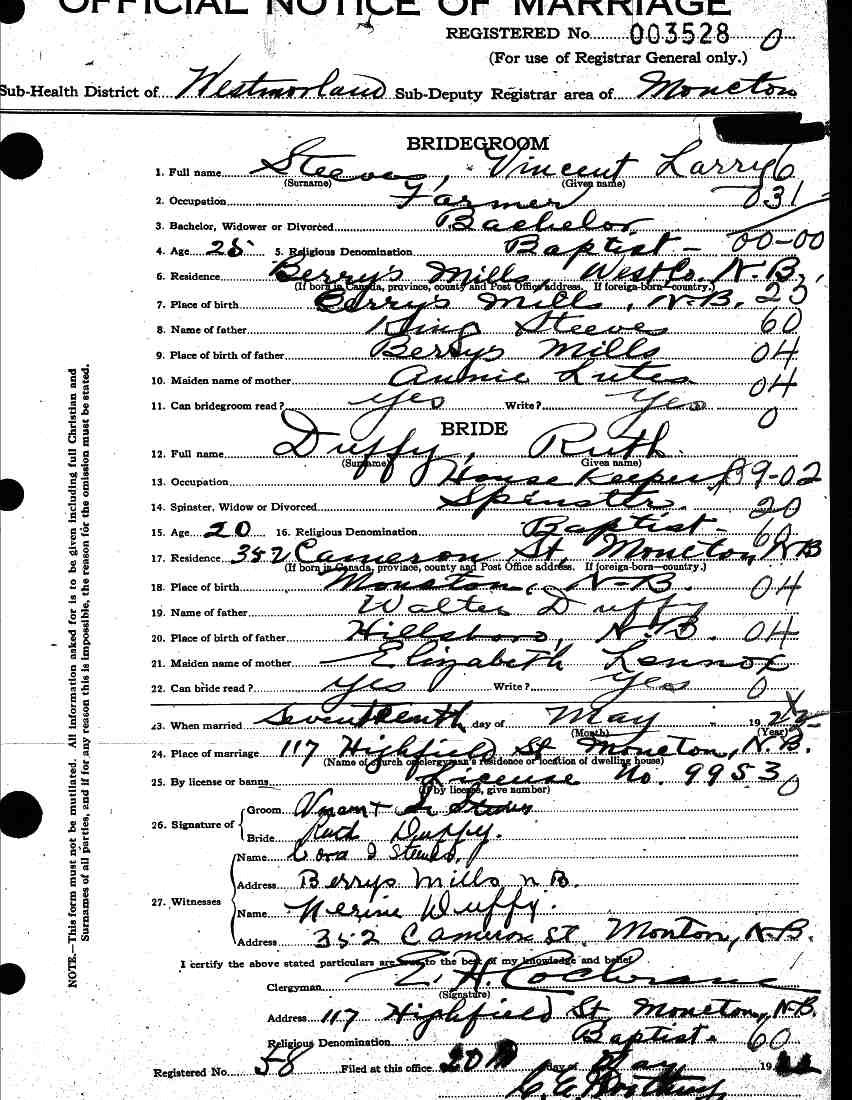 OFFICIAL NOTICE OF MARRIAGE
REGISTERED No. 003528 0
(For use of Registrar General only.)
Sub-Health District of Westmorland Sub-Deputy Registrar area of Moncton
BRIDEGROOM
1. Full name Steeves, Vincent Larry 6
(Surname) (Given name)
2. Occupation Farmer 031
3. Bachelor, Widower or Divorced Bachelor
4. Age 25 5. Religious Denomination Baptist - 00-00
6. Residence Berrys Mills, West Co. N.B.,
(If born in Canada, province, county and Post Office address. If foreign-born—country.)
7. Place of birth Berrys Mills, N.B. 25
8. Name of father King Steeves 60
9. Place of birth of father Berrys Mills 04
10. Maiden name of mother Annie Lutes 04
11. Can bridegroom read? yes Write? yes 0
BRIDE
12. Full name Duffy, Ruth
(Surname) Given name)
13. Occupation House Keeper 89-02
14. Spinster, Widow or Divorced Spinster. 20
15. Age 20 16. Religious Denomination Baptist - 60
17. Residence 352 Cameron St, Moncton, N B
(If born in Canada, province, county and Post Office address. If foreign-born—country.)
18. Place of birth Moncton, N-B. 04
19. Name of father Walter Duffy
20. Place of birth of father Hillsboro, N.B. 04
21. Maiden name of mother Elizabeth Lennox
22. Can bride read? yes Write? yes 0
23. When married Seventeenth day of May 19
(Month) (Year)
24. Place of marriage 117 Highfield St Moncton, N.B.
(Name of church or clergyman's residence or location of dwelling house)
25. By license or banns License No. 9953 0
(If by license, give number)
26. Signature of Groom Vincent L Steeves
Bride Ruth Duffy.
27. Witnesses Name Cora I Steeves
Address Berrys Mills N B.
Name Nerine Duffy.
Address 352 Cameron St. Monton, N.B.
I certify the above stated particulars are true to the best of my knowledge and belief.
Clergyman E. H. Cochrane
(Signature)
Address 117 Highfield St, Moncton, N.B.
Religious Denomination Baptist. 60
Registered No. 58 Filed at this office 20 day of May 19
NOTE.—This form must not be mutilated. All information asked for is to be given including full Christian and
Surnames of all parties, and if for any reason this is impossible, the reason for the omission must be stated.